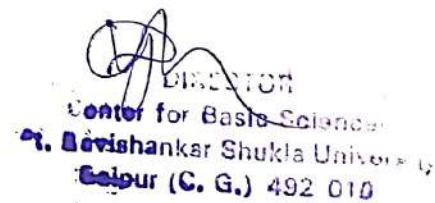 DIRECTOR
Center for Basic Science
Pt. Ravishankar Shukla University
Raipur (C. G.) 492 010